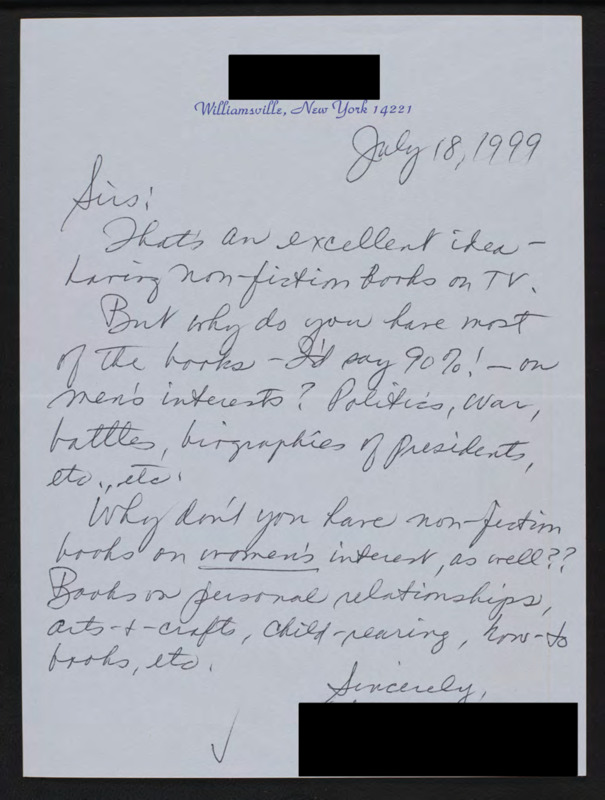 Williamsville, New York 14221
July 18, 1999
Sirs:
That's an excellent idea -
having non-fiction books on TV.
But why do you have most
of the books - I'd say 90%! - on
men's interests? Politics, war,
battles, biographies of presidents,
etc., etc.
Why don't you have non-fiction
books on women's interest, as well??
Books on personal relationships,
arts-+-crafts, child-rearing, how-to
books, etc.
Sincerely,